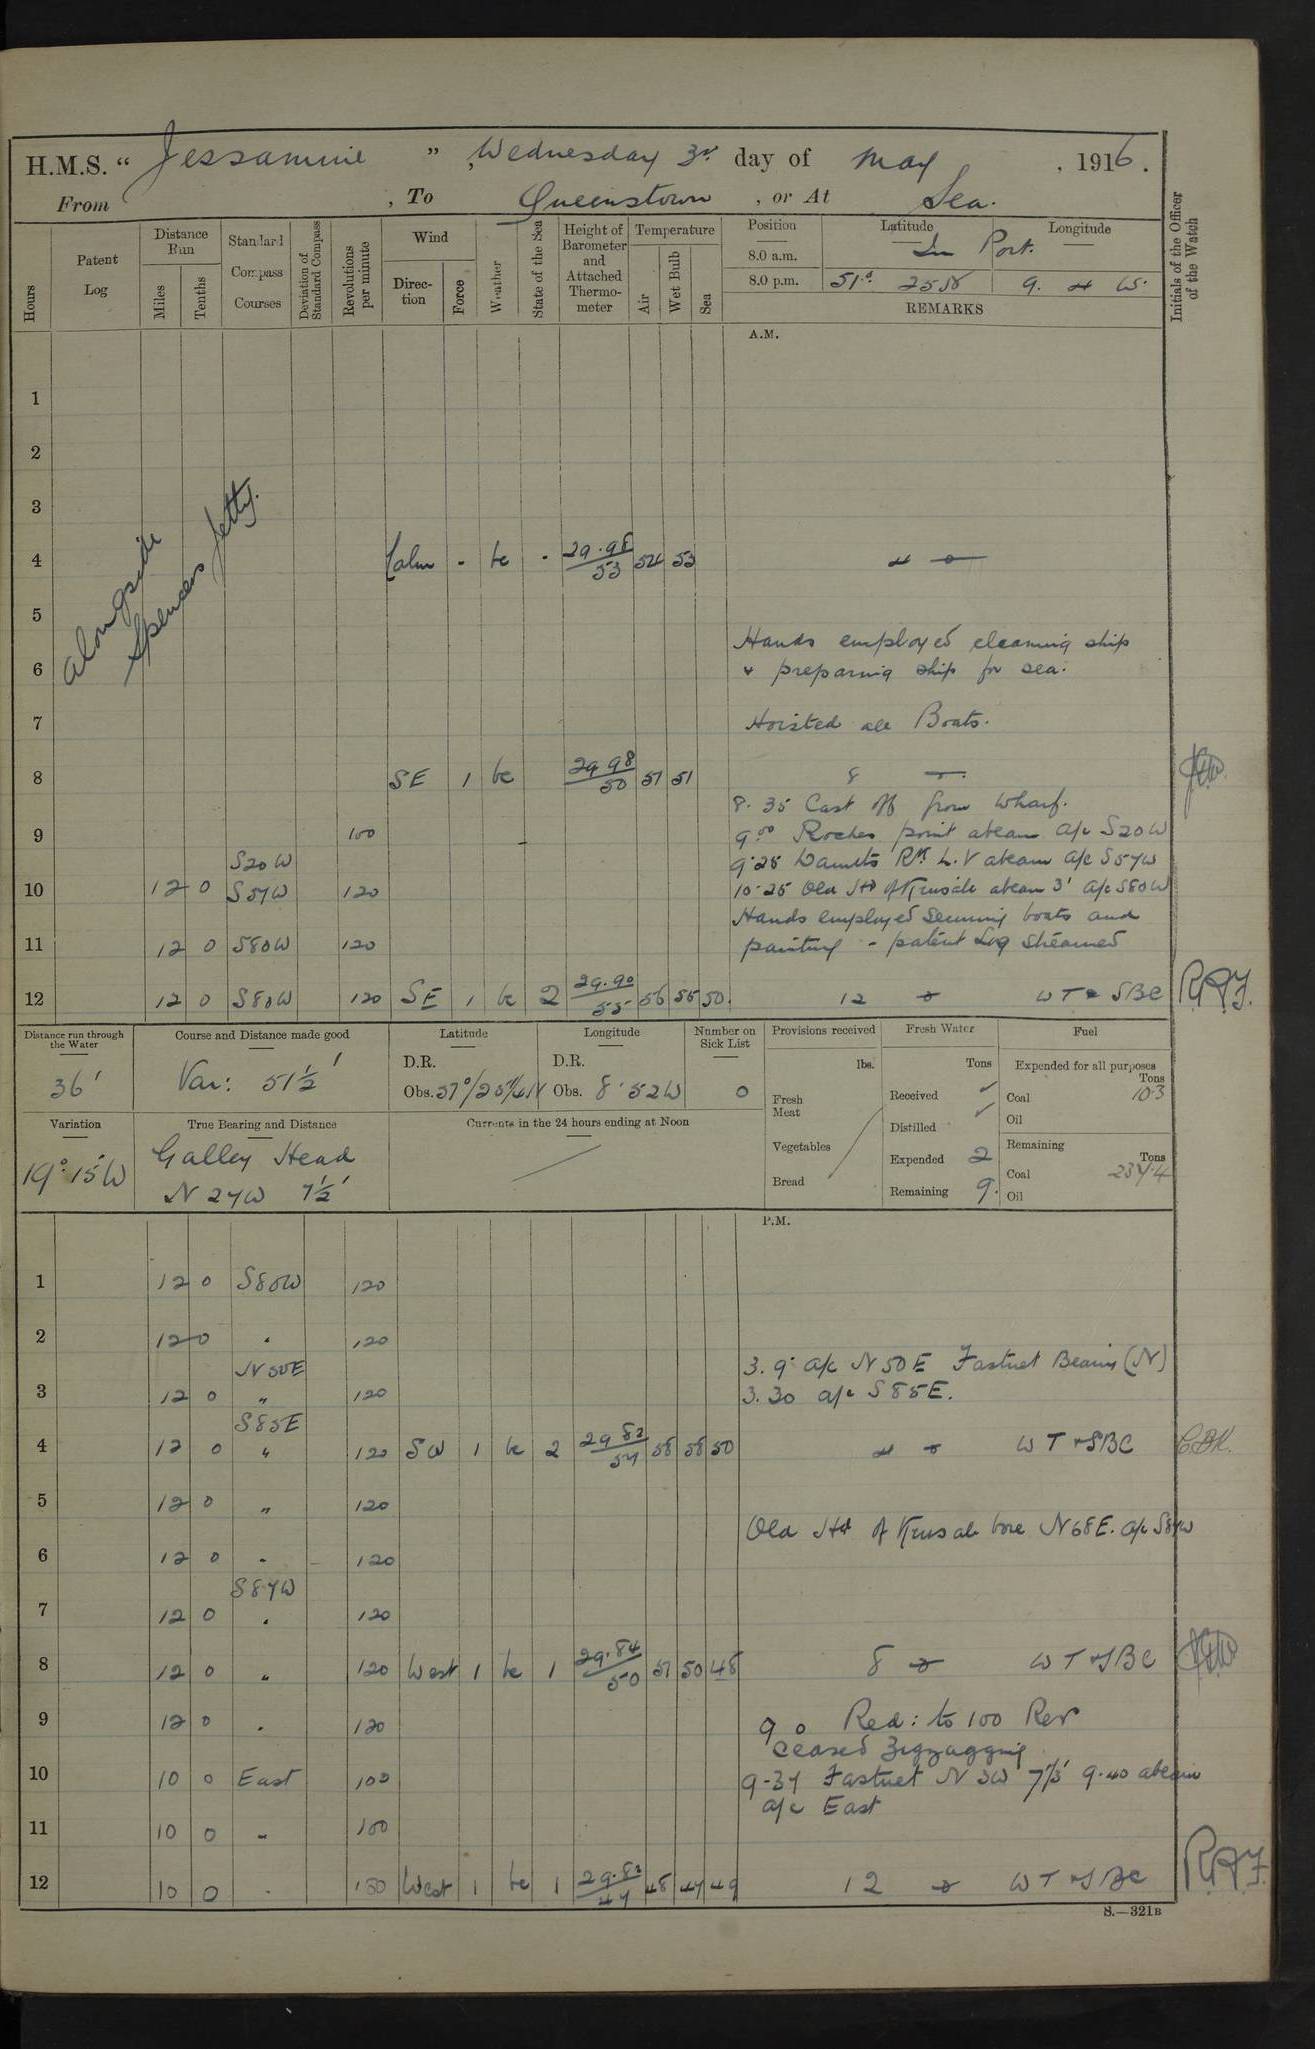 H.M.S. “ Jessamine ” , Wednesday 3rd day of May , 1916.
From , To Queenstown , or At Sea.
Hours
Patent Log
Distance Run
Miles
Tenths
Standard Compass Courses
Deviation of Standard Compass
Revolutions per minute
Wind
Direction
Force
Weather
State of the Sea
Height of Barometer and Attached Thermometer
Temperature
Air
Wet Bulb
Sea
Position
Latitude
Longitude
8.0 a.m. In Port.
8.0 p.m. 51° 25 N 9. 4 W.
REMARKS
Initials of the Officer of the Watch
A.M.
alongside
Spencers Jetty.
1
2
3
4 Calm - bc - 29.98/53 54 53 4
5
Hands employed cleaning ship
6 & preparing ship for sea.
7 Hoisted all Boats.
8 SE 1 bc 29 98/50 51 51 8
8. 35 Cast off from Wharf.
9 100 9.00 Roches point abeam a/c S20W
S20W 9.28 Daunts Rk L.V abeam a/c S57W
10 12 0 S57W 120 10.25 Old Hd of Kinsale abeam 3' a/c S80W
Hands employed securing boats and
11 12 0 S80W 120 painting - patent Log streamed
12 12 0 S80W 120 SE 1 bc 2 29.90/55 56 55 50. 12 WT & SBC RAF.
Distance run through the Water
36'
Course and Distance made good
Var: 51½'
Latitude
D.R.
Obs.
Longitude
D.R.
Obs. 8° 52W
Number on Sick List
0
Provisions received
lbs.
Fresh Meat
Vegetables
Bread
Fresh Water
Tons
Received ✓
Distilled ✓
Expended 2
Remaining 9.
Fuel
Expended for all purposes
Tons
Coal 10.3
Oil
Remaining
Tons
Coal 237.4
Oil
Variation
19° 15'W
True Bearing and Distance
Galley Head
N 27W 7½'
Currents in the 24 hours ending at Noon
P.M.
1 12 0 S80W 120
2 12 0 " 120
N50E 3. 9. a/c N50E Fastnet Bearing (N)
3 12 0 " 120 3.30 a/c S85E.
S85E
4 12 0 " 120 SW 1 bc 2 29 82/54 58 58 50 4 WT & SBC
5 12 0 " 120
Old Hd of Kinsale bore N68E. a/c S87W
6 12 0 " 120
S87W
7 12 0 " 120
8 12 0 " 120 West 1 bc 1 29.84/50 51 50 48 8 WT & SBC
9 12 0 " 120 9 0 Red: to 100 Rev
ceased Zigzagging
10 10 0 East 100 9-37 Fastnet N 3W 7⅓' 9.40 abeam
a/c East
11 10 0 " 100
12 10 0 " 100 West 1 bc 1 29.82/47 48 47 49 12 WT & SBC RAF.
S.—321B